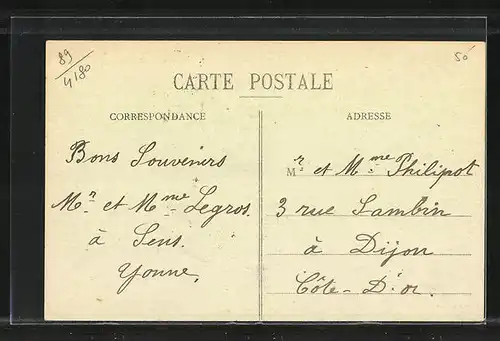 89
4180
50
CARTE POSTALE
CORRESPONDANCE
Bons Souvenirs
Mr. et Mme Legros.
à Sens.
Yonne,
ADRESSE
Mr. et Mme Philipot
3 rue Sambin
à Dijon
Côte-D'or.